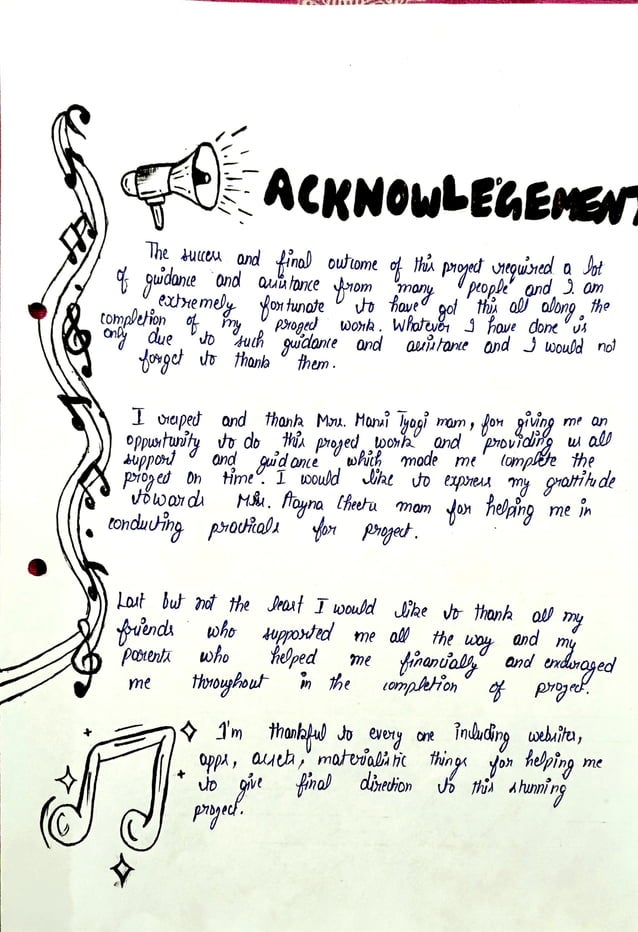 ACKNOWLEGEMENT
The success and final outcome of this project required a lot
of guidance and assistance from many people and I am
extremely fortunate to have got this all along the
completion of my project work. Whatever I have done is
only due to such guidance and assistance and I would not
forget to thank them.
I respect and thank Mrs. Mansi Tyagi mam, for giving me an
oppurtunity to do this project work and providing us all
support and guidance which made me complete the
project on time. I would like to express my grattitude
towards Mrs. Aayna mam for helping me in
conducting practicals for project.
Last but not the least I would like to thank all my
friends who supported me all the way and my
parents who helped me financially and encouraged
me throughout in the completion of project.
I'm thankful to every one including websites,
apps, assets, materialistic things for helping me
to give final direction to this stunning
project.